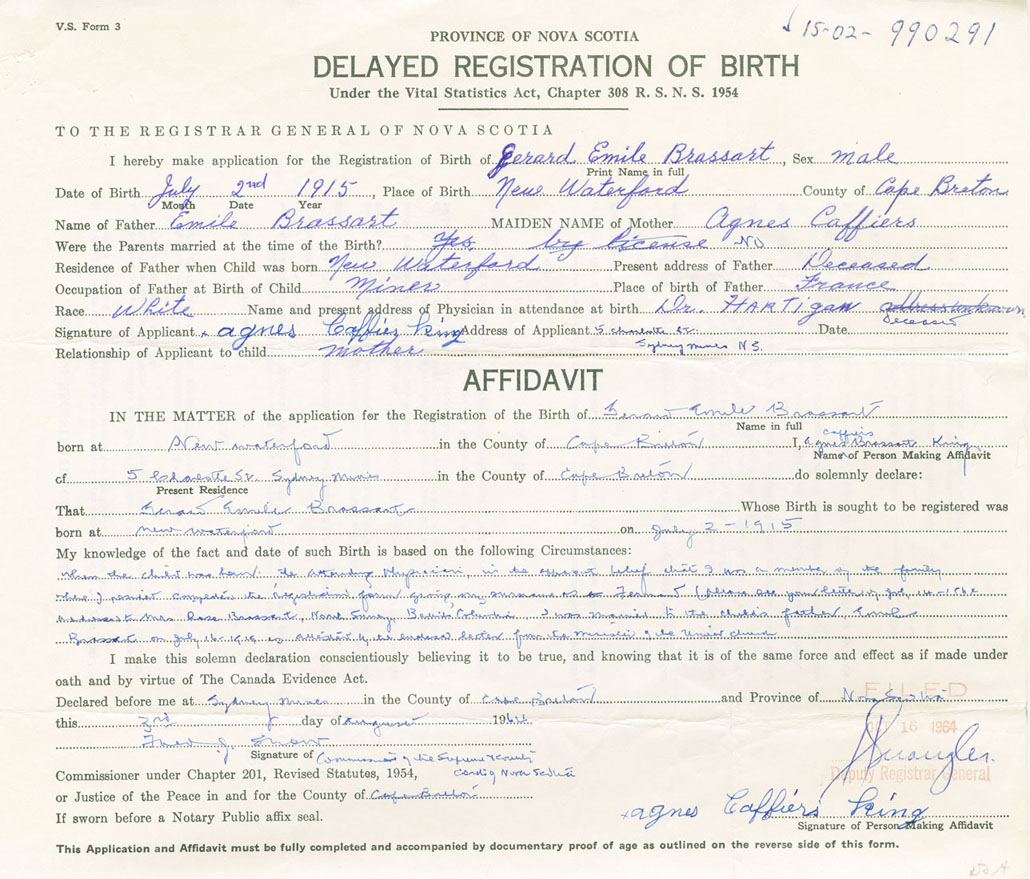 V.S. Form 3
15-02- 990291
PROVINCE OF NOVA SCOTIA
DELAYED REGISTRATION OF BIRTH
Under the Vital Statistics Act, Chapter 308 R. S. N. S. 1954
TO THE REGISTRAR GENERAL OF NOVA SCOTIA
I hereby make application for the Registration of Birth of Gerard Emile Brassart, Sex male
Print Name in full
Date of Birth July 2nd 1915, Place of Birth New Waterford County of Cape Breton
Month Date Year
Name of Father Emile Brassart MAIDEN NAME of Mother Agnes Caffiers
Were the Parents married at the time of the Birth? Yes by license NO
Residence of Father when Child was born New Waterford Present address of Father Deceased
Occupation of Father at Birth of Child Miner Place of birth of Father France
Race White Name and present address of Physician in attendance at birth Dr. HARTIGAN address unknown
Deceased
Signature of Applicant x agnes Caffiers King Address of Applicant 5 Charlotte St. Date
Sydney Mines N S.
Relationship of Applicant to child mother
AFFIDAVIT
IN THE MATTER of the application for the Registration of the Birth of Gerard Emile Brassart
Name in full
caffiers
born at New Waterford in the County of Cape Breton I, Agnes Brassart King
Name of Person Making Affidavit
of 5 Charlotte St. Sydney Mines in the County of Cape Breton do solemnly declare:
Present Residence
That Gerard Emile Brassart Whose Birth is sought to be registered was
born at New Waterford on July 2 - 1915
My knowledge of the fact and date of such Birth is based on the following Circumstances:
When the child was born the attending Physician, in the belief that I was a member of the family
where I completed the registration form giving my surname as Fermant (Please see your letter of July 14 - 196
addressed to Mrs. Rose Brassart, North Surrey, British Columbia I was married to the child's father, Emile
Brassart on July 16 - 1919 as by the enclosed letter from the minister of the United church
I make this solemn declaration conscientiously believing it to be true, and knowing that it is of the same force and effect as if made under
oath and by virtue of The Canada Evidence Act.
Declared before me at Sydney Mines in the County of Cape Breton and Province of Nova Scotia
FILED
this 3rd day of August 1964
OCT 16 1964
Fred J. Snow
Signature of Commissioner of the Supreme Court
Commissioner under Chapter 201, Revised Statutes, 1954,
Deputy Registrar General
or Justice of the Peace in and for the County of Cape Breton
x agnes Caffiers King
If sworn before a Notary Public affix seal.
Signature of Person Making Affidavit
This Application and Affidavit must be fully completed and accompanied by documentary proof of age as outlined on the reverse side of this form.